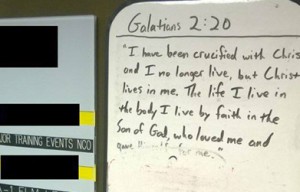 Galatians 2:20
"I have been crucified with Chris
and I no longer live, but Christ
lives in me. The life I live in
the body I live by faith in the
Son of God, who loved me and
gave himself for me."
JOR TRAINING EVENTS NCO